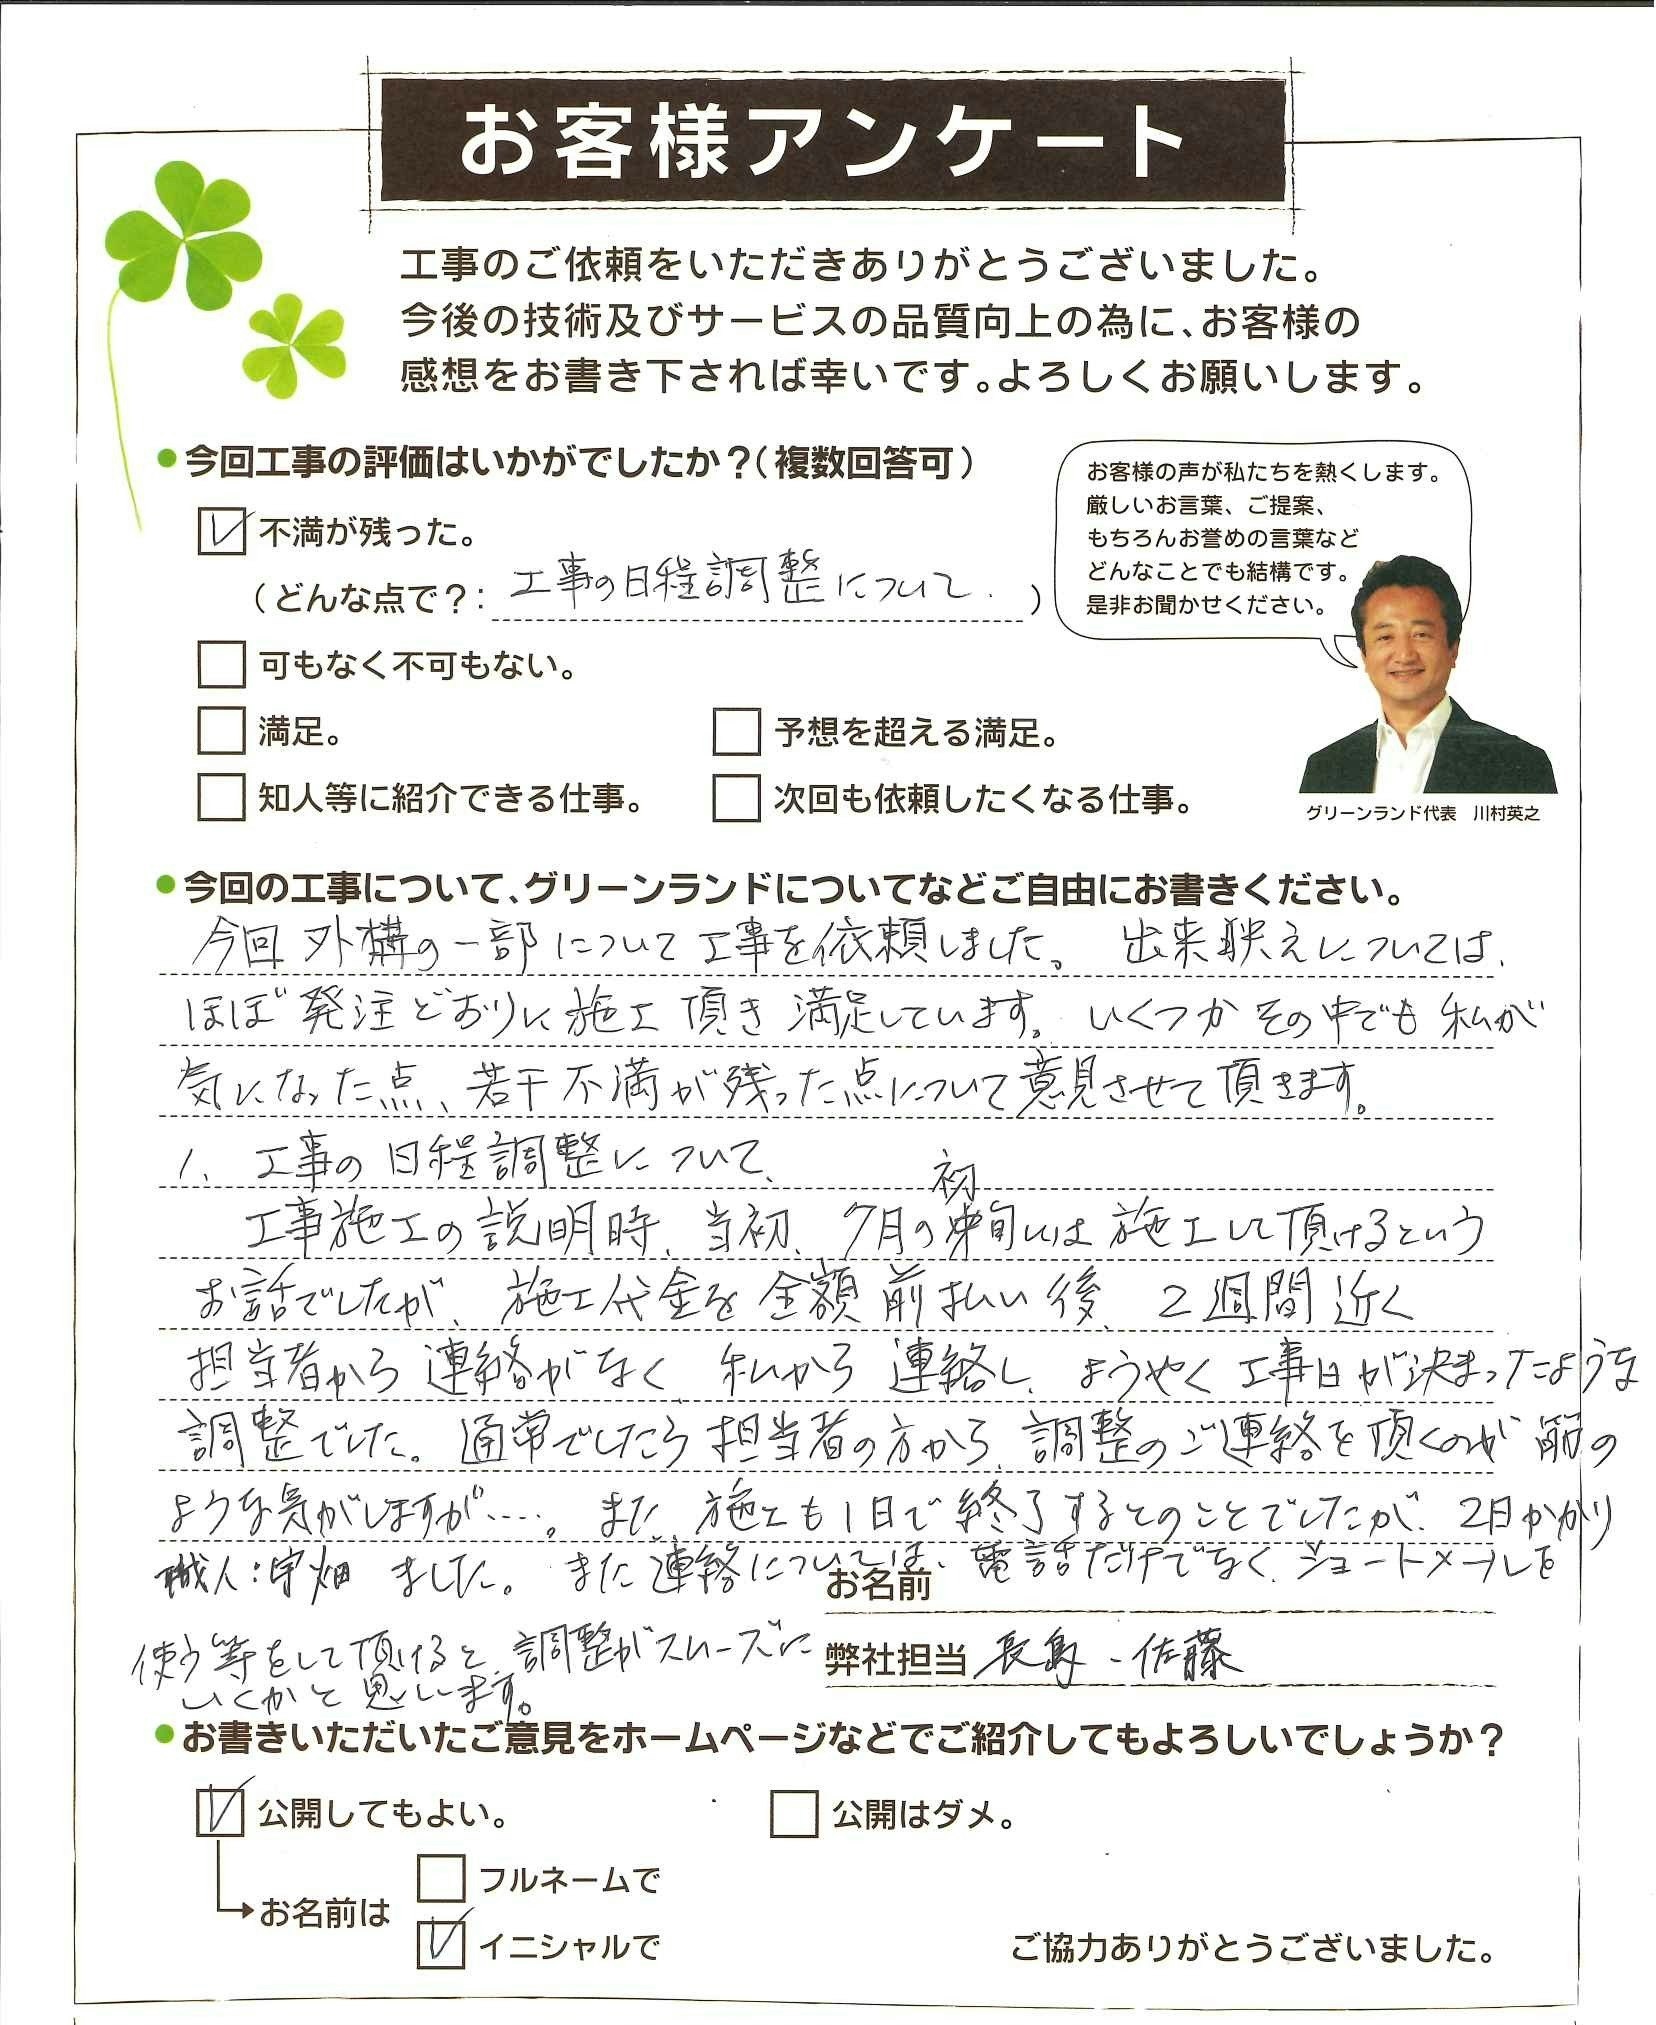 お客様アンケート
工事のご依頼をいただきありがとうございました。
今後の技術及びサービスの品質向上の為に、お客様の
感想をお書き下されば幸いです。よろしくお願いします。
●今回工事の評価はいかがでしたか?(複数回答可)
お客様の声が私たちを熱くします。
厳しいお言葉、ご提案、
もちろんお誉めの言葉など
どんなことでも結構です。
是非お聞かせください。
不満が残った。
(どんな点で?: 工事の日程調整について.)
可もなく不可もない。
満足。
予想を超える満足。
知人等に紹介できる仕事。
次回も依頼したくなる仕事。
グリーンランド代表 川村英之
●今回の工事について、グリーンランドについてなどご自由にお書きください。
今回外構の一部について工事を依頼しました。出来映えについては、
ほぼ発注どおりに施工頂き満足しています。いくつかその中でも私が
気になった点、若干不満が残った点について意見させて頂きます。
1、工事の日程調整について、
初
工事施工の説明時、当初、7月の旬には施工して頂けるという
お話でしたが、施工代金を全額前払い後、2週間近く
担当者から連絡がなく、私から連絡し、ようやく工事日が決まったような
調整でした。通常でしたら担当者の方から、調整のご連絡を頂くのが筋の
ような気がしますが……。また、施工も1日で終了するとのことでしたが、2日かかり
職人:宇畑 ました。また連絡については、電話だけでなく、ショートメールを
お名前
使う等をして頂けると、調整がスムーズに
いくかと思います。
弊社担当 長島・佐藤
●お書きいただいたご意見をホームページなどでご紹介してもよろしいでしょうか?
公開してもよい。
公開はダメ。
お名前は
フルネームで
イニシャルで
ご協力ありがとうございました。